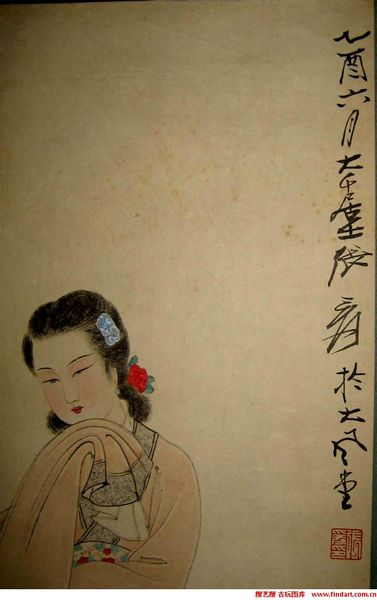 乙酉六月大千居士張爰於大風堂
雅艺阁 古玩图库 www.findart.com.cn